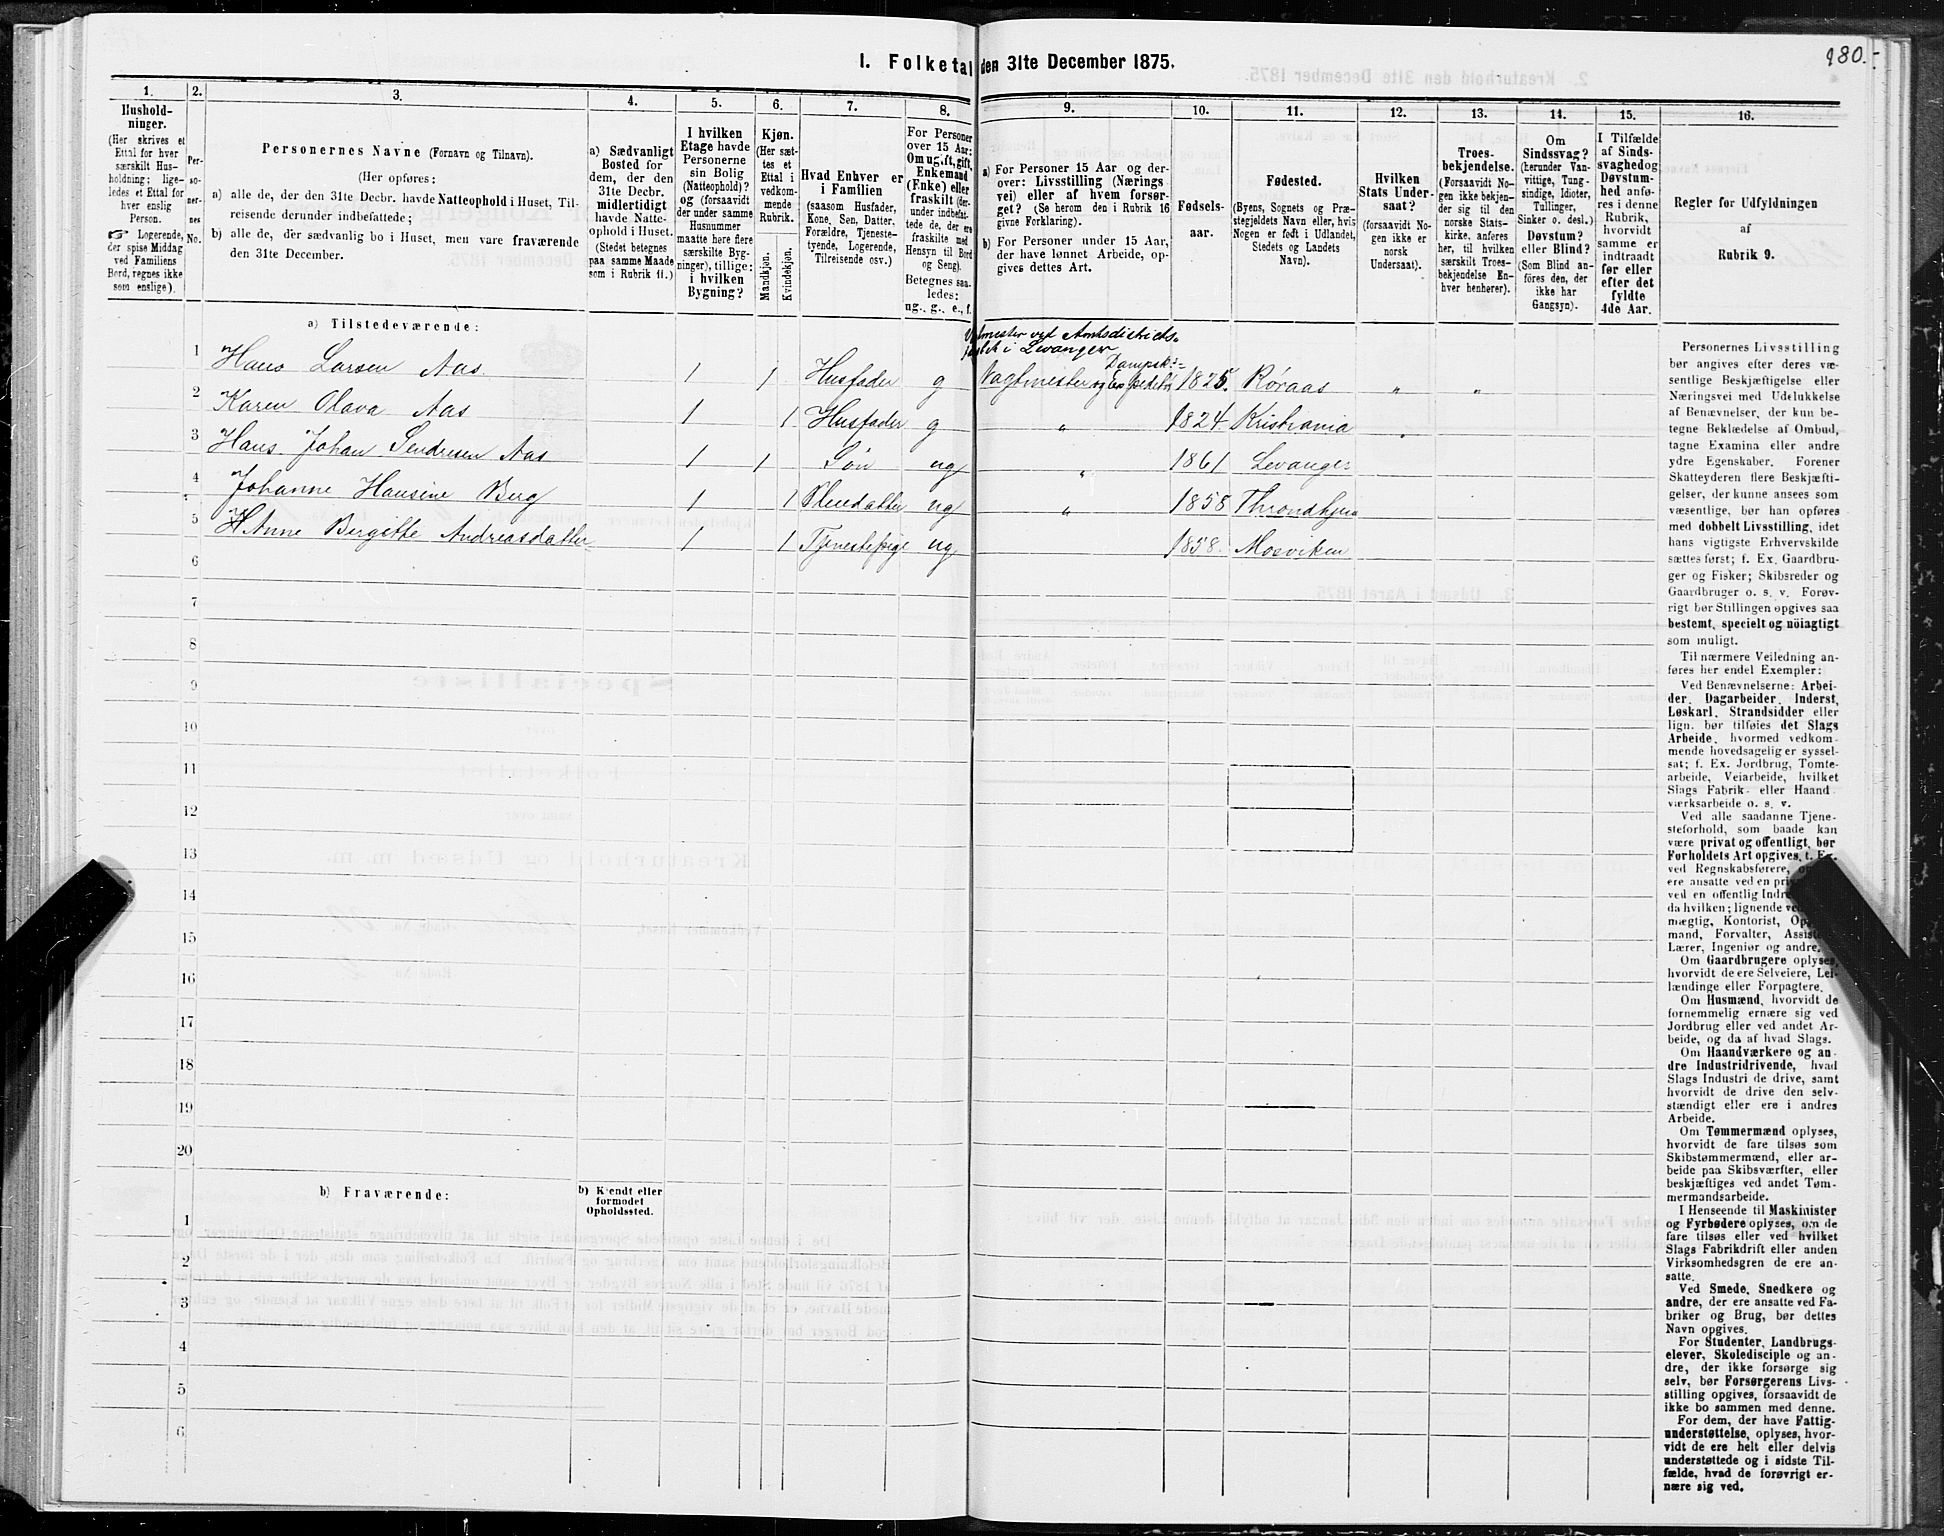 980.
1. Folketal den 31te December 1875.
1.
2.
3.
4.
5.
6.
7.
8.
9.
10.
11.
12.
13.
14.
15.
16.
Hushold-
ninger.
(Her skrives et
Ettal for hver
særskilt Hus-
holdning; lige-
ledes et Ettal for
hver enslig
Person.
Logerende,
der spise Middag
ved Familiens
Bord, regnes ikke
som enslige).
Per-
so-
ner-
nes
No.
Personernes Navne (Fornavn og Tilnavn).
(Her opføres:
a) alle de, der den 31te Decbr. havde Natteophold i Huset, Til-
reisende derunder indbefattede;
b) alle de, der sædvanlig bo i Huset, men vare fraværende
den 31te December.
a) Sædvanligt
Bosted for
dem, der den
31te Decbr.
midlertidigt
havde Natte-
ophold i Huset.
(Stedet betegnes
paa samme Maade
som i Rubrik 11.)
I hvilken
Etage havde
Personerne
sin Bolig
(Natteophold)?
og (forsaavidt
der under samme
Husnummer
maatte høre flere
særskilte Byg-
ninger), tillige:
i hvilken
Bygning?
Kjøn.
(Her sæt-
tes et
Ettal i
vedkom-
mende
Rubrik.
Mandkjøn.
Kvindekjøn.
Hvad Enhver er
i Familien
(saasom Husfader,
Kone, Søn, Datter,
Forældre, Tjeneste-
tyende, Logerende,
Tilreisende osv.)
For Personer
over 15 Aar:
Om ugift, gift,
Enkemand
(Enke) eller
fraskilt (der-
under indbefat-
tede de, der ere
fraskilte med
Hensyn til Bord
og Seng).
Betegnes saa-
ledes:
ug., g., e., f.
a) For Personer 15 Aar og der-
over: Livsstilling (Nærings
vei) eller af hvem forsør-
get? (Se herom den i Rubrik 16
givne Forklaring).
b) For Personer under 15 Aar,
der have lønnet Arbeide, op-
gives dettes Art.
Fødsels-
aar.
Fødested.
(Byens, Sognets og Præ-
stegjeldets Navn eller, hvis
Nogen er født i Udlandet,
Stedets og Landets
Navn).
Hvilken
Stats Under-
saat?
(forsaavidt No-
gen ikke er
norsk
Undersaat).
Troes-
bekjendelse.
(Forsaavidt No-
gen ikke bekjen-
der sig til den
norske Stats-
kirke. anføres
her, til hvilken
særskilt Troes-
bekjendelse En-
hver henhører).
Om
Sindssvag?
(herunder Van-
vittige, Tung-
sindige, Idioter,
Tullinger,
Sinker o. desl.)
Døvstum?
eller Blind?
(Som Blind an-
føres den, der
ikke har
Gangsyn).
I Tilfælde
af Sinds-
svaghed og
Døvstum-
hed anfø-
res i denne
Rubrik,
hvorvidt
samme er
indtraadt
før eller
efter det
fyldte
4de Aar.
Regler for Udfyldningen
af
Rubrik 9.
a) Tilstedeværende:
1 Hans Larsen Aas 1 1 Husfader g Vagtmester og Dampsk: Expeditør 1825. Røraas " "
2 Karen Olava Aas 1 1 Husfader g " 1824. Kristiania "
3 Hans Johan Sendresen Aas 1 1 Søn ug " 1861 Levanger
4 Johanne Hansine Berg 1 1 Pleiedatter ug " 1858 Throndhjem
5 Anne Birgitte Andreasdatter 1 1 Tjenestepige ug 1858. Mosviken
6
7
8
9
10
11
12
13
14
15
16
17
18
19
20
b) Fraværende:
b) Kjendt eller
formodet
Opholdssted.
1
2
3
4
5
6
Personernes Livsstilling
bør angives efter deres væ-
sentlige Beskjæftigelse eller
Næringsvei med Udelukkelse
af Benævnelser, der kun be-
tegne Beklædelse af Ombud,
tagne Examina eller andre
ydre Egenskaber. Forener
Skatteyderen flere Beskjæfti-
gelser, der kunne ansees som
væsentlige, bør han opføres
med dobbelt Livsstilling, idet
hans vigtigste Erhvervskilde
sættes først; f. Ex. Gaardbru-
ger og Fisker; Skibsreder og
Gaardbruger o. s. v. Forøv-
rigt bør Stillingen opgives saa
bestemt, specielt og nöiagtigt
som muligt.
Til nærmere Veiledning an-
føres her endel Exempler:
Ved Benævnelserne: Arbei-
der, Dagarbeider, Inderst,
Løskarl, Strandsidder eller
lign. bør tilføies det Slags
Arbeide, hvormed vedkom-
mende hovedsagelig er syssel-
sat; f. Ex. Jordbrug, Tomte-
arbeide, Veiarbeide, hvilket
Slags Fabrik- eller Haand
værksarbeide o. s. v.
Ved alle saadanne Tjene-
steforhold, som baade kan
være privat og offentligt, bør
Forholdets Art opgives, f. Ex.
ved Regnskabsførere,
ere ansatte ved en
ved en offentlig
da hvilken; lignende
mægtig, Kontorist,
mand, Forvalter,
Lærer, Ingeniør og andre.
Om Gaardbrugere oplyses,
hvorvidt de ere Selveiere, Lei-
lændinge eller Forpagtere.
Om Husmænd, hvorvidt de
fornemmelig ernære sig ved
Jordbrug eller ved andet Ar-
beide, og da af hvad Slags.
Om Haandværkere og an-
dre Industridrivende, hvad
Slags Industri de drive, samt
hvorvidt de drive den selv-
stændigt eller ere i andres
Arbeide.
Om Tømmermænd oplyses,
hvorvidt de fare tilsøs som
Skibstømmermænd, eller ar-
beide paa Skibsværfter, eller
beskjæftiges ved andet Tøm-
mermandsarbeide.
I Henseende til Maskinister
og Fyrbødere oplyses, om de
fare tilsøs eller ved hvilket
Slags Fabrikdrift eller anden
Virksomhedsgren de ere an-
satte.
Ved Smede, Snedkere og
andre, der ere ansatte ved Fa-
briker og Brug, bør dettes
Navn opgives.
For Studenter, Landbrugs-
elever, Skoledisciple og an-
dre, der ikke forsørge sig
selv, bør Forsørgerens Livs-
stilling opgives, forsaavidt de
ikke bo sammen med denne.
For dem, der have Fattig-
understøttelse, oplyses, hvor-
vidt de ere helt eller delvis
understøttede og i sidste Til-
fælde, hvad de forøvrigt er-
nære sig ved.